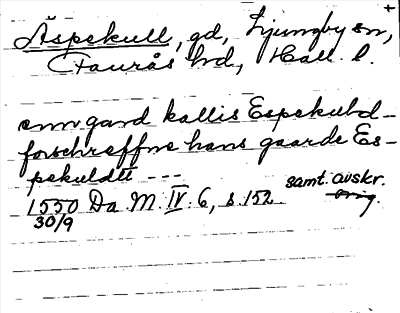 +
Äspekull, gd, Ljungby sn,
Faurås hd, Hall. l.
enn gard kallis Espekuld -
forschreffne hans gaarde Es-
pekuldtt ---
samt. avskr.
orig.
1550 Da. M. IV. 6, s. 152
30/9